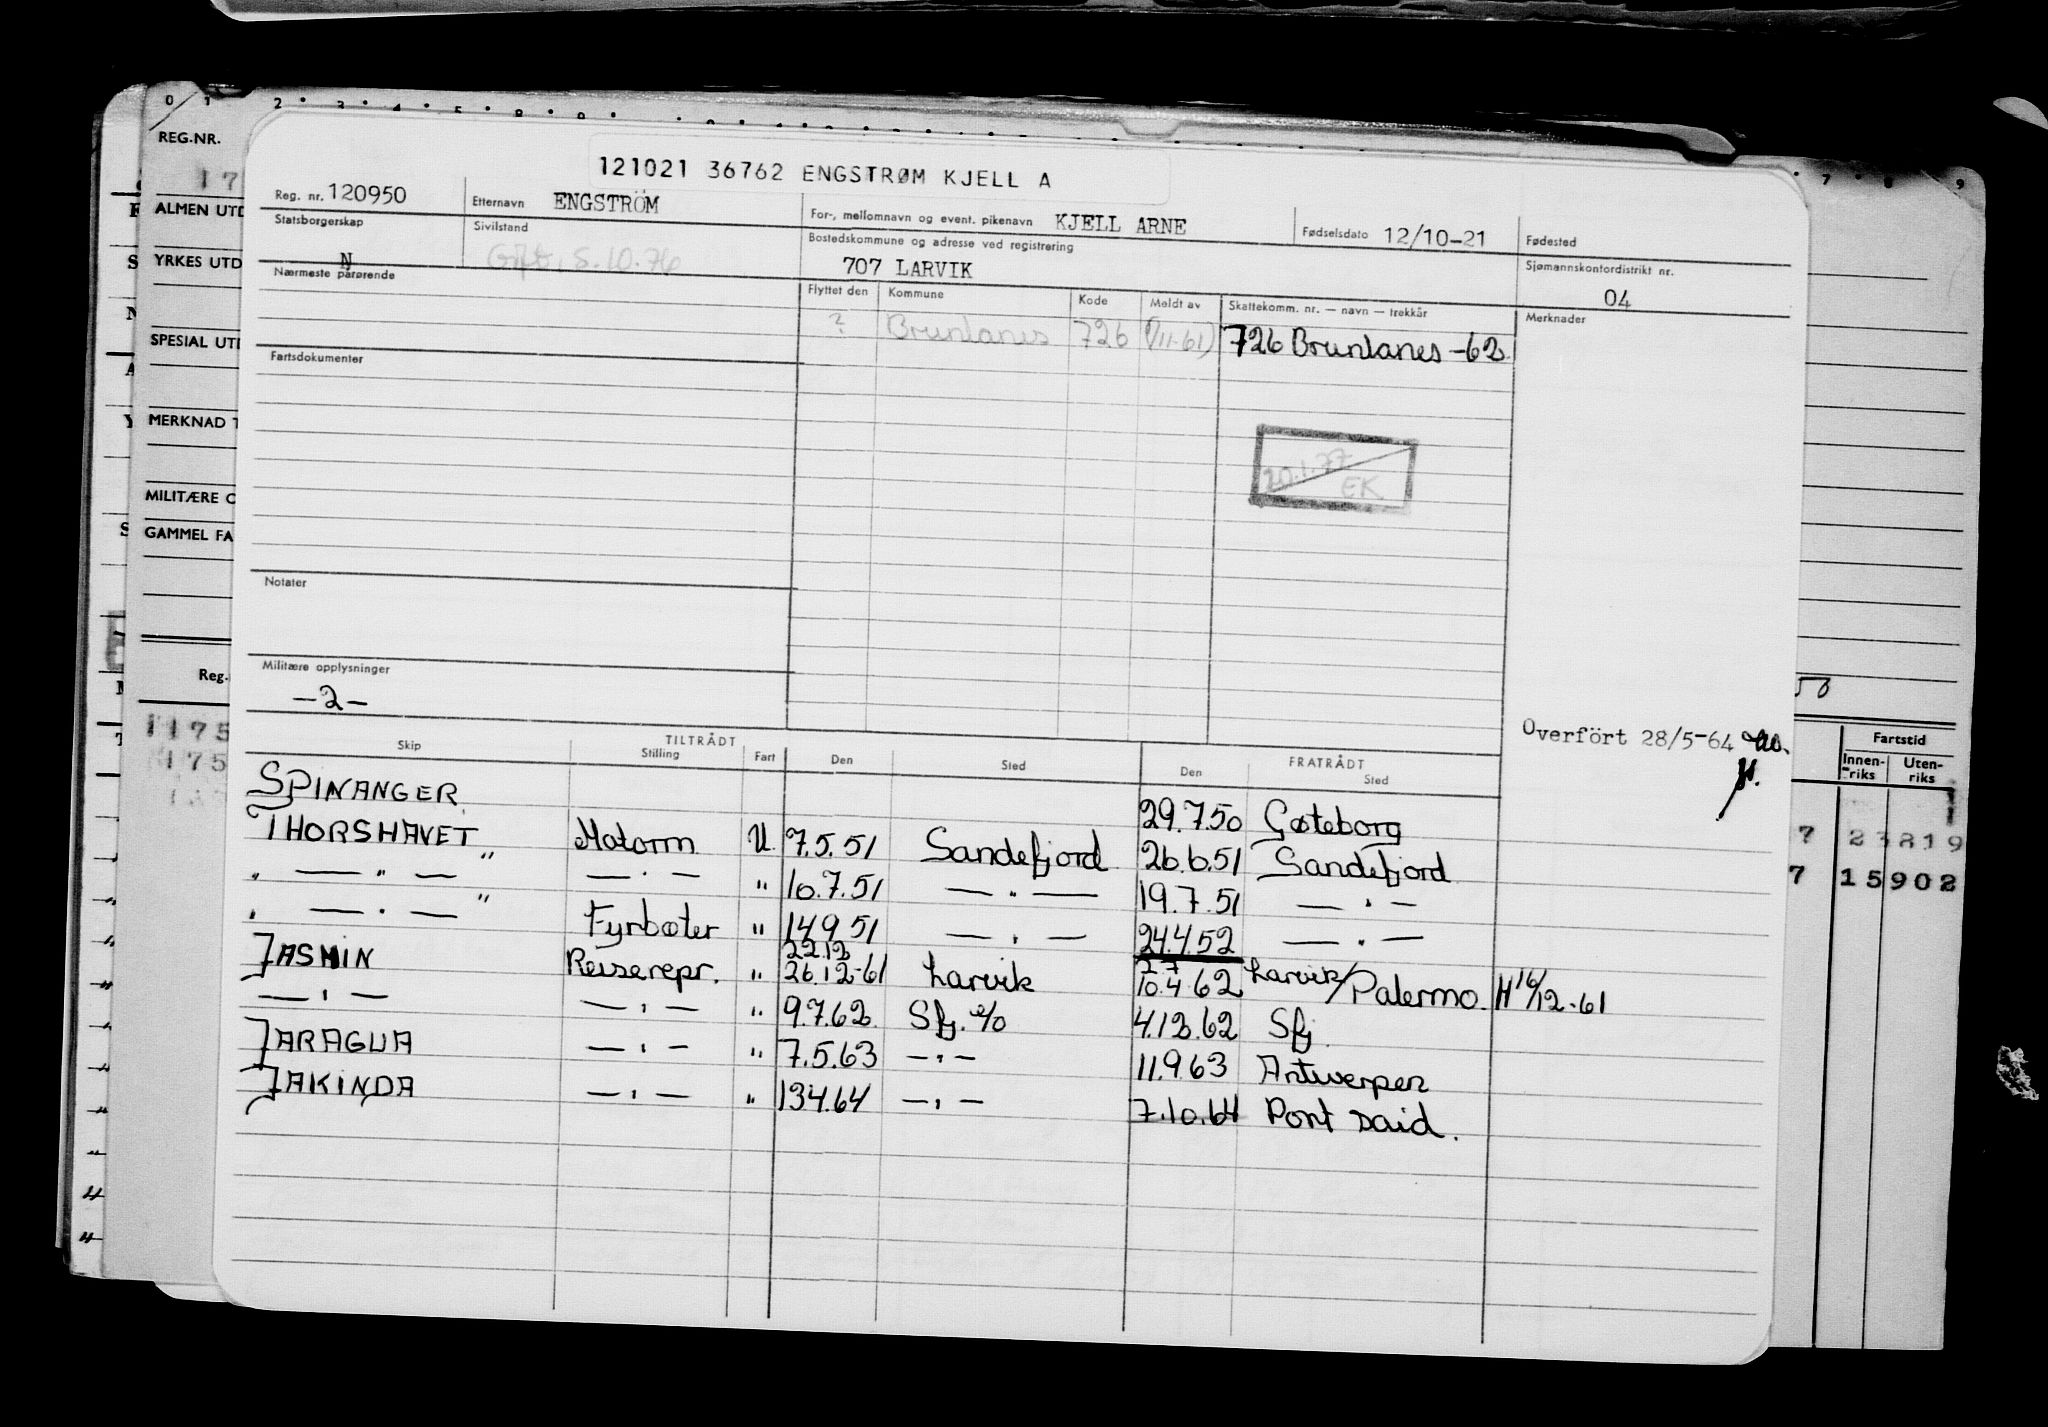 0 1 2 3 4 5 8 9
7 8 9
REG.NR.
17
ALMEN UTD
YRKES UTD
SPECIAL UTD
MERKNAD T
MILITÆRE O
GAMMEL FA
Reg.
1175
175
121021 36762 ENGSTRØM KJELL A
Reg. nr. 120950 Etternavn ENGSTRÖM For-, mellomnavn og event. pikenavn KJELL ARNE Fødselsdato 12/10-21 Fødested
Statsborgerskap N Sivilstand Gift, 5.10.76 Bostedskommune og adresse ved registrering 707 LARVIK Sjømannskontordistrikt nr. 04
Nærmeste pårørende Flyttet den Kommune Kode Meldt av Skattekomm. nr. — navn — trekkår Merknader
? Brunlanes 726 (/11-61) 726 Brunlanes -62
Fartsdokumenter
20.1.77 EK
Notater
Militære opplysninger
-2-
Overfört 28/5-64
Fartstid
Innen-riks Uten-riks
7 23819
7 15902
TILTRÅDT FRATRÅDT
Skip Stilling Fart Den Sted Den Sted
SPINANGER 29.7.50 Gøteborg
THORSHAVET Motorm U. 7.5.51 Sandefjord 26.6.51 Sandefjord
" — " — " — " — " 10.7.51 — " — 19.7.51 — " —
" — " — " Fyrbøter " 14.9.51 — " — 24.4.52 — " —
JASMIN Reiserepr. " 22.12 26.12-61 Larvik 2.7 10.4.62 Larvik/Palermo. H 16/12-61
— " — — " — " 9.7.62 Sfj. o/o 4.12.62 Sfj
JARAGUA — " — " 7.5.63 — " — 11.9.63 Antwerpen
JAKINDA — " — " 13.4.64 — " — 7.10.64 Port Said.